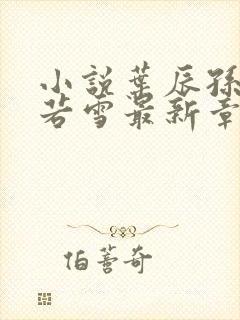 小説葉辰孫
若雪最新章
伯蕾奇